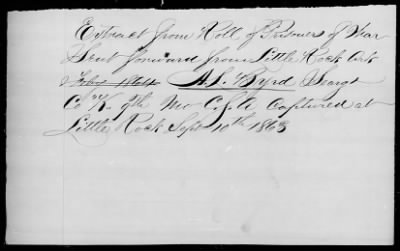 Extract from Roll of Prisoners of War
Sent forward from Little Rock Ark
A.S. Byrd Seargt
Co K. 9th Mo C.S.A. Captured at
Little Rock Sept 10th 1863